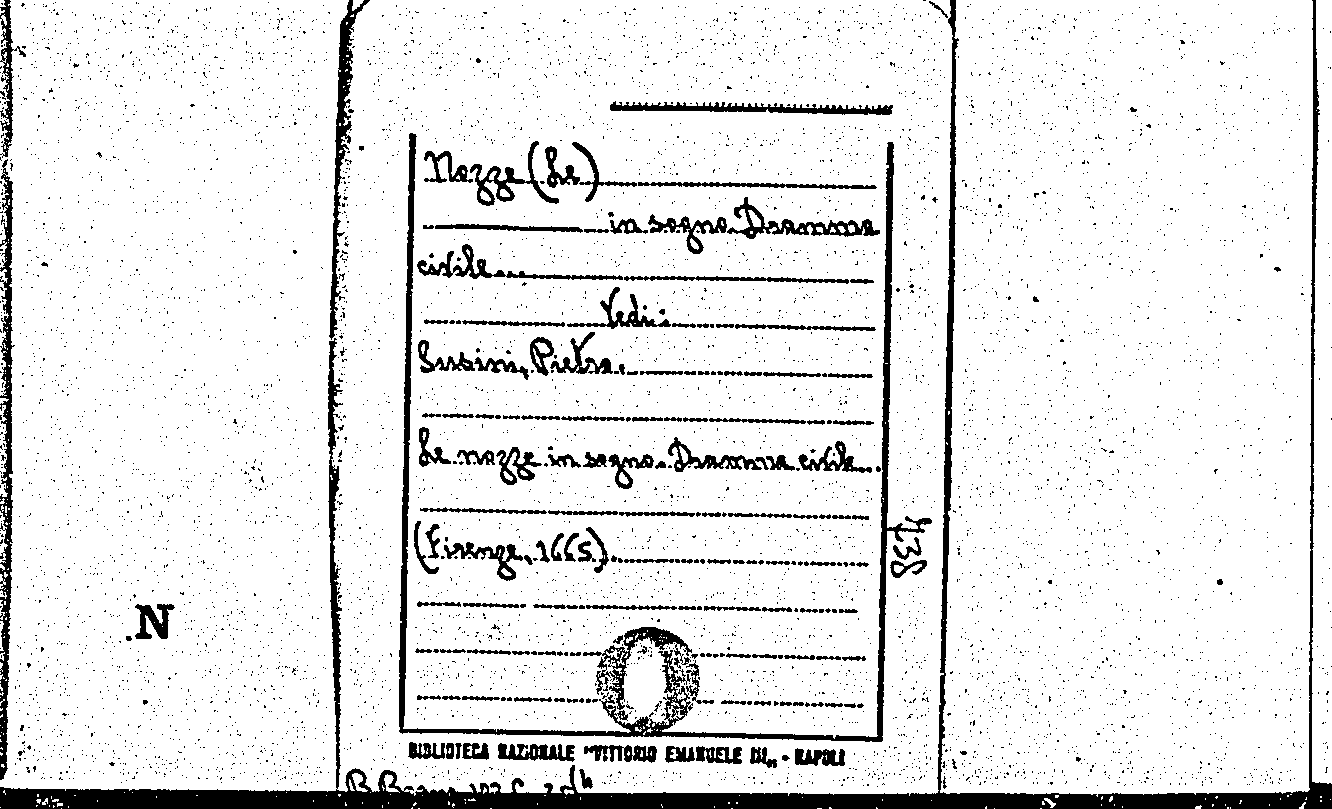 Nozze (Le)
in sogno. Dramma
civile...
Vedi:
Susini, Pietro.
Le nozze in sogno. Dramma civile...
(Firenze, 1665).
4738
N
BIBLIOTECA NAZIONALE "VITTORIO EMANUELE III" - NAPOLI